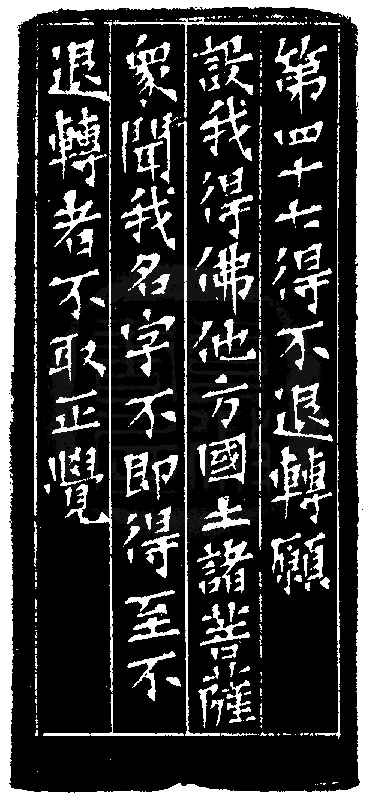 第四十七得不退轉願
設我得佛他方國土諸菩薩
衆聞我名字不即得至不
退轉者不取正覺